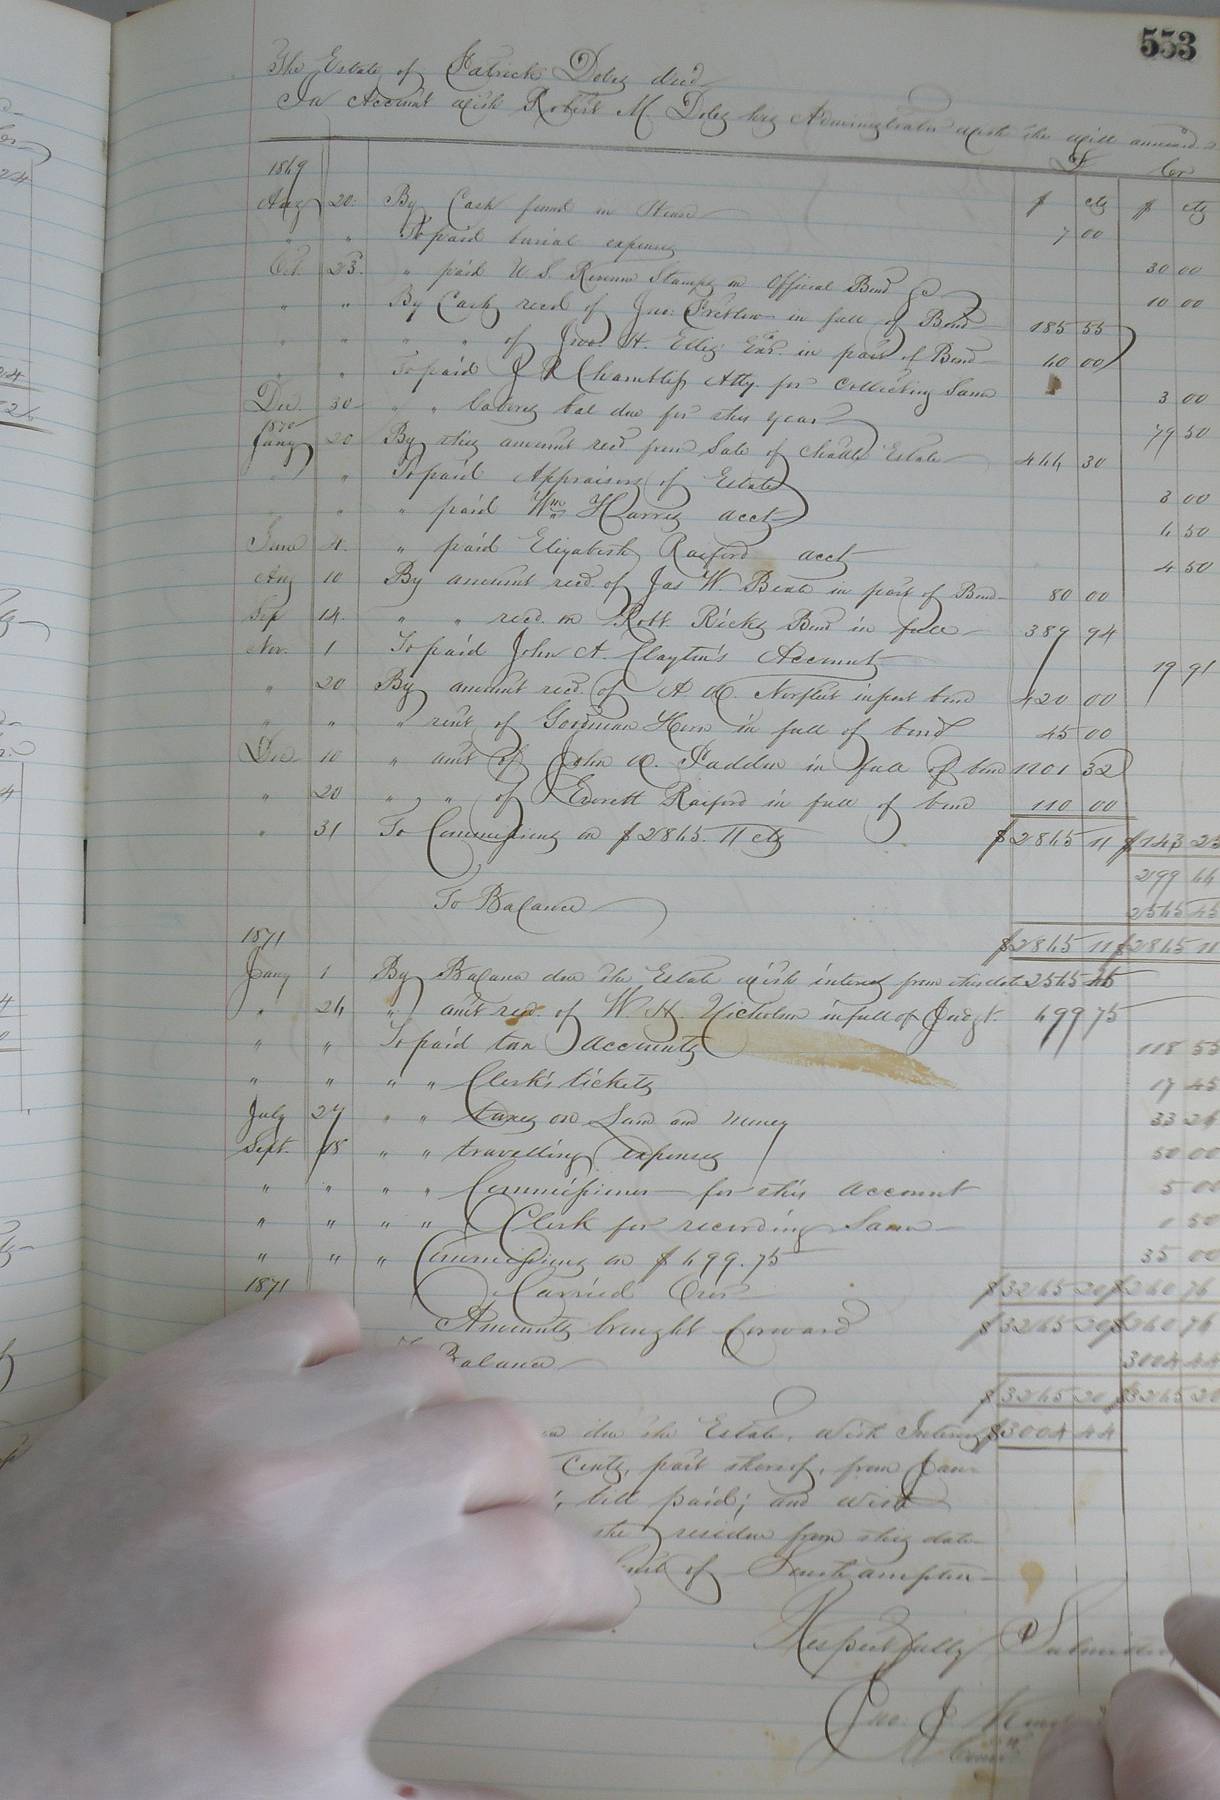 553
The Estate of Patrick Doles decd
In Account with Robert M. Doles his Administrator with the will annexed
Dr Cr
1869 $ cts $ cts
Aug 20. By Cash found in House 7 00
" " To paid burial expenses 30 00
Oct. 23. " paid U. S. Revenue Stamps on Official Bond &c 10 00
" " By Cash recd of Jno: Pretlow in full of Bond 185 55
" " " " of Jno. H. Ellis Exr. in part of Bond 40 00
" " To paid J R Chambliss Atty. for collecting Same 3 00
Dec. 30 " " laborers bal due for this year 79 50
1870
Jany 20 By this amount recd from Sale of Chattle Estate 444 30
" " To paid Appraisers of Estate 3 00
" " " paid Wm Harris acct 50
June 4. " paid Elizabeth Raiford acct 4 50
Aug 10 By amount recd. of Jas W. in part of Bond 80 00
Sep 14. " " recd. on Robt Ricks Bond in full 389 94
Nov. 1 To paid John A. Clayton's Account 19 91
" 20 By amount recd. of A Norfleet in part bond 420 00
" " " rent of Goodman in full of bond 45 00
Dec 10 " amt of John in full of bond 32
" 20 " " of Everett Raiford in full of bond 110 00
" 31 To Commissions on $2865.11 cts $2865 11 $143 25
299 66
To Balance 2565 45
1871 $2865 11 $2865 11
Jany 1 By Balance due the Estate with interest from this date 2565 45
" 24 " amt recd. of W. H. Nicholson in full of Judgt. 699 75
" " To paid tax Accounts 118 55
" " " " Clerk's tickets 17 45
July 27 " " taxes on Land and money 33 26
Sept. 18 " " travelling expenses 50 00
" " " " Commissioner for this account 5 00
" " " " Clerk for recording Same 50
" " " Commissions on $699.75 35 00
1871 Carried Over $3265 20 $260 76
Amounts brought forward $3265 20 $260 76
Balance 3004 44
$3265 20 $3265 20
due the Estate, with Interest $3004 44
Cents, part thereof, from Jan
till paid; and with
the residue from this date
of Southampton
Respectfully Submitted
Jno. J.